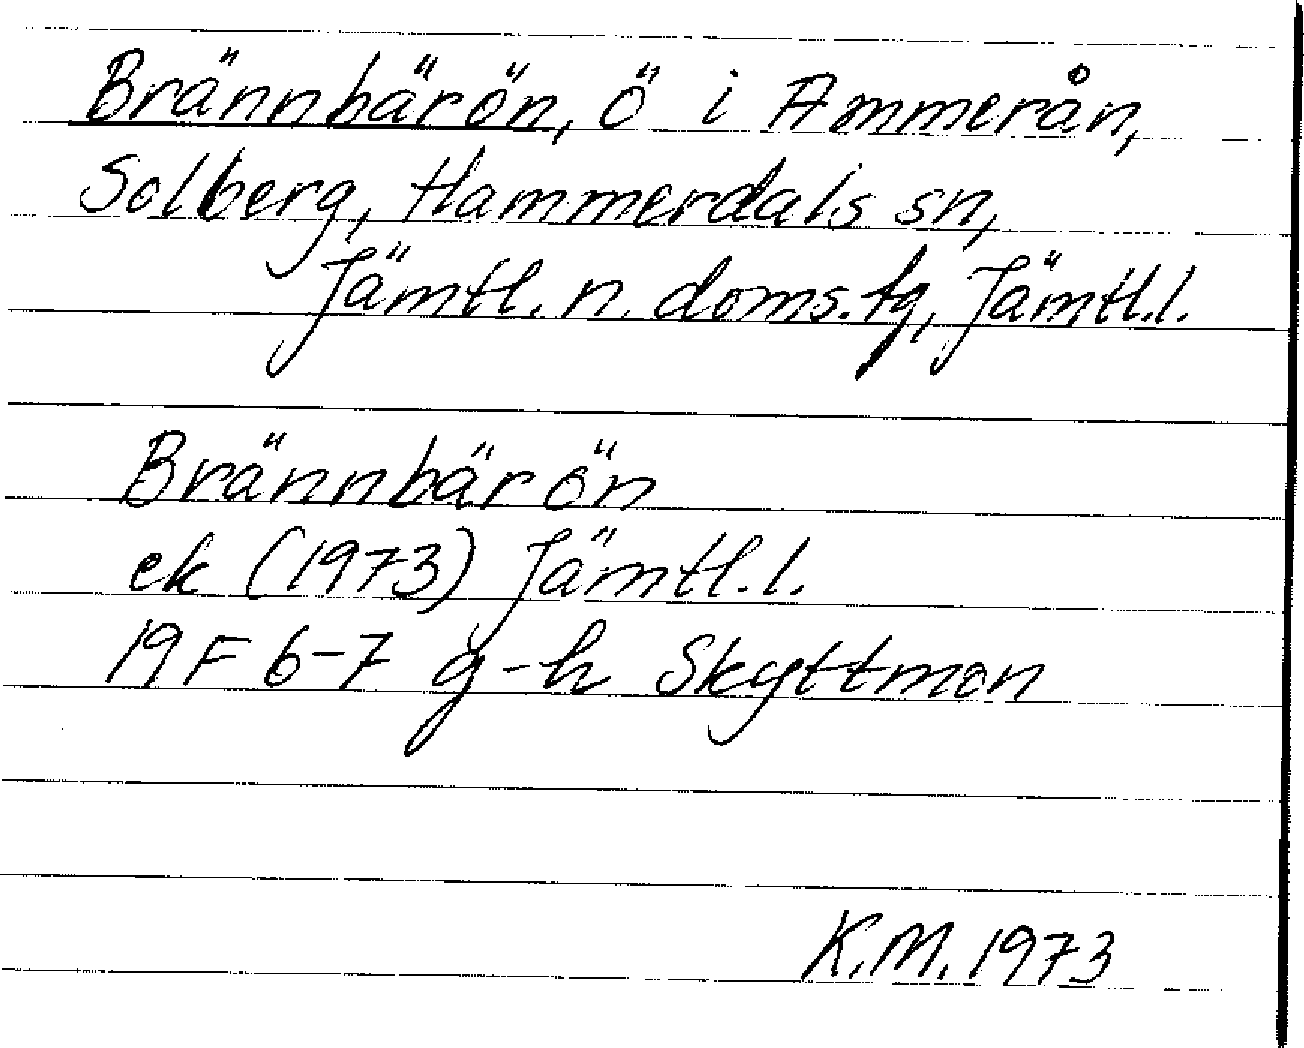 Brännbärön, ö i Ammerån,
Solberg, Hammerdals sn,
Jämtl. n. doms.tg, Jämtl.l.
Brännbärön
ek (1973) Jämtl.l.
19F 6-7 g-h Skyttmon
K.M. 1973